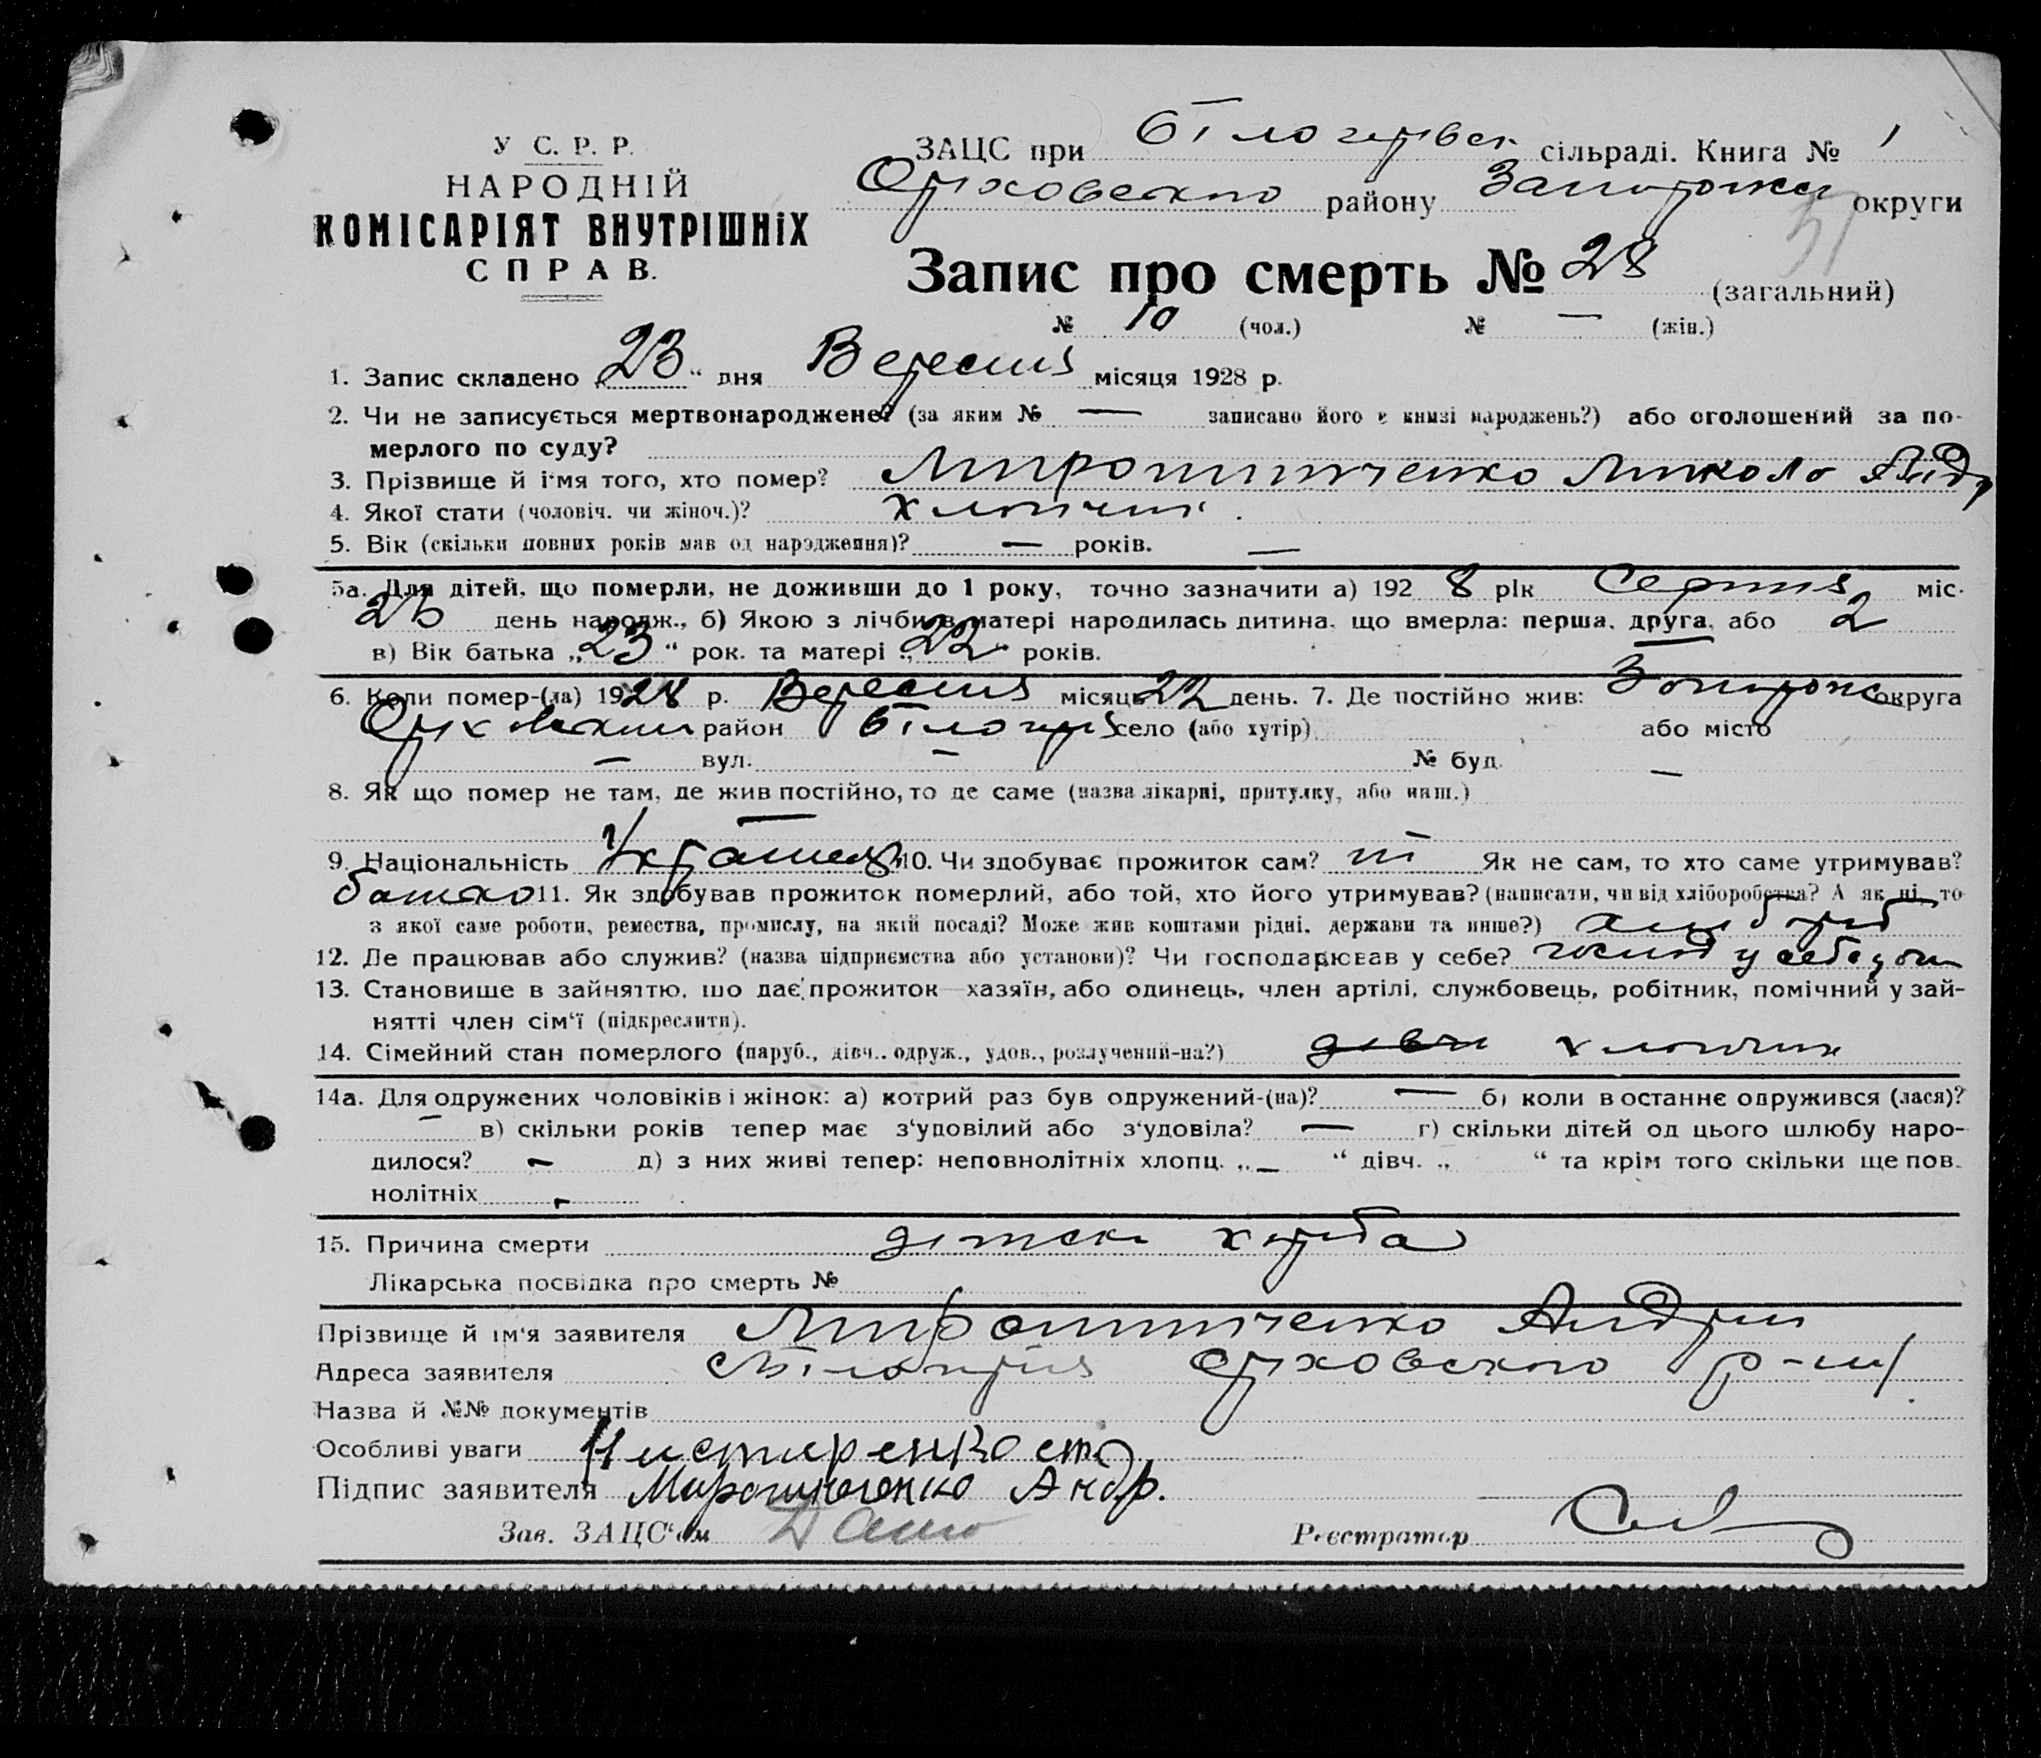 У С. Р. Р.
НАРОДНІЙ
КОМІСАРІЯТ ВНУТРІШНІХ
СПРАВ.
ЗАЦС при Білогірвск. сільраді. Книга № 1
Оріховского району Запоріжск округи
51
Запис про смерть № 28 (загальний)
№ 10 (чол.) № — (жін.)
1. Запис складено „23“ дня Вересня місяця 1928 р.
2. Чи не записується мертвонароджене? (за яким № — записано його в книзі народжень?) або оголошений за по-
мерлого по суду?
3. Прізвище й ім'я того, хто помер? Мирошниченко Микола Андр
4. Якої стати (чоловіч. чи жіноч.)? хлопчик.
5. Вік (скільки повних років мав од народження)? — років. —
5а. Для дітей, що померли, не доживши до 1 року, точно зазначити а) 1928 рік Серпня міс.
23 день народж., б) Якою з лічби в матері народилась дитина, що вмерла: перша, друга, або 2
в) Вік батька „23“ рок. та матері „22“ років.
6. Коли помер-(ла) 1928 р. Вересня місяць 22 день. 7. Де постійно жив: Запоріжс округа
Оріховский район Білогіря село (або хутір) або місто
— вул. — № буд. —
8. Як що помер не там, де жив постійно, то де саме (назва лікарні, притулку, або инш.)
—
9. Національність Україней 10. Чи здобуває прожиток сам? ні Як не сам, то хто саме утримував?
батько 11. Як здобував прожиток померлий, або той, хто його утримував? (написати, чи від хліборобства? А як ні, то
з якої саме роботи, ремества, промислу, на якій посаді? Може жив коштами рідні, держави та инше?) хлібороб
12. Де працював або служив? (назва підприємства або установи)? Чи господарював у себе? у себе
13. Становище в зайняттю, що дає прожиток—хазяїн, або одинець, член артілі, службовець, робітник, помічний у зай-
нятті член сім'ї (підкреслити).
14. Сімейний стан померлого (паруб., дівч., одруж., удов., розлучений-на?) девч хлопчик
14а. Для одружених чоловіків і жінок: а) котрий раз був одружений-(на)? — б) коли востаннє одружився (лася)?
— в) скільки років тепер має з'удовілий або з'удовіла? — г) скільки дітей од цього шлюбу наро-
дилося? — д) з них живі тепер: неповнолітніх хлопц. „—“ дівч. „ “ та крім того скільки ще пов-
нолітніх —
15. Причина смерти детска хороба
Лікарська посвідка про смерть №
Прізвище й ім'я заявителя Мирошниченко Андрій
Адреса заявителя Білогіря Оріховского р-ну
Назва й №№ документів
Особливі уваги
Підпис заявителя Мирошниченко Андр.
Зав. ЗАЦС'ом
Реєстратор